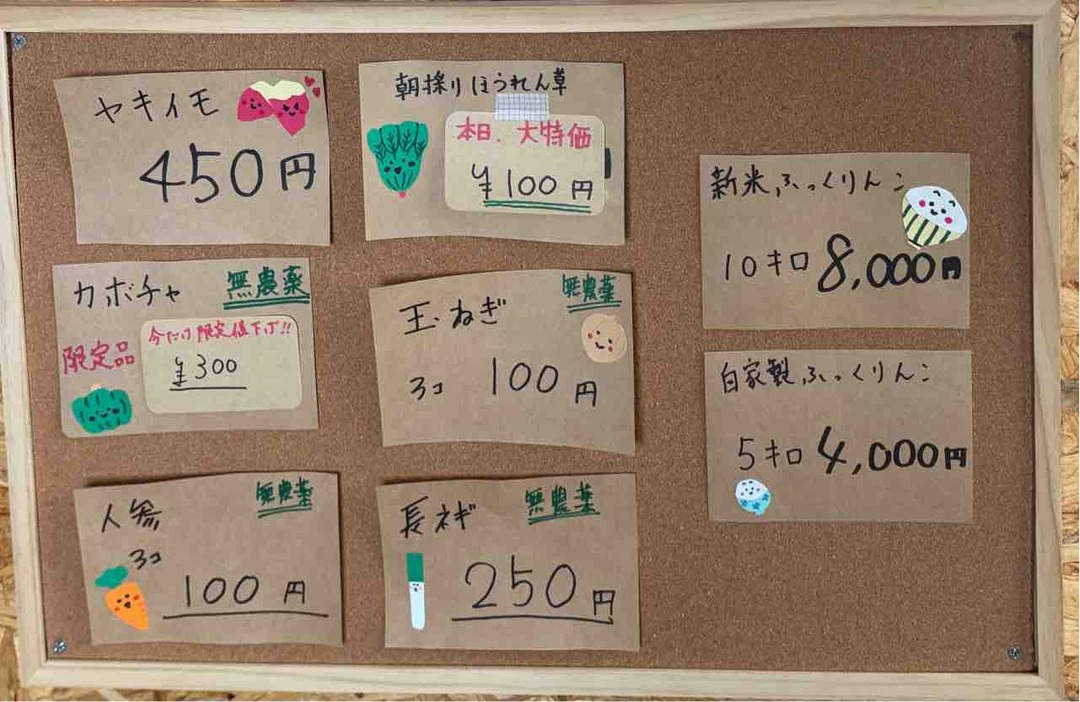 ヤキイモ
450円
朝採りほうれん草
本日、大特価
¥100円
新米ふっくりんこ
10キロ 8,000円
カボチャ 無農薬
限定品
今だけ限定値下げ!!
¥300
玉ねぎ 無農薬
3コ 100円
自家製ふっくりんこ
5キロ 4,000円
人参 無農薬
3コ
100円
長ネギ 無農薬
250円